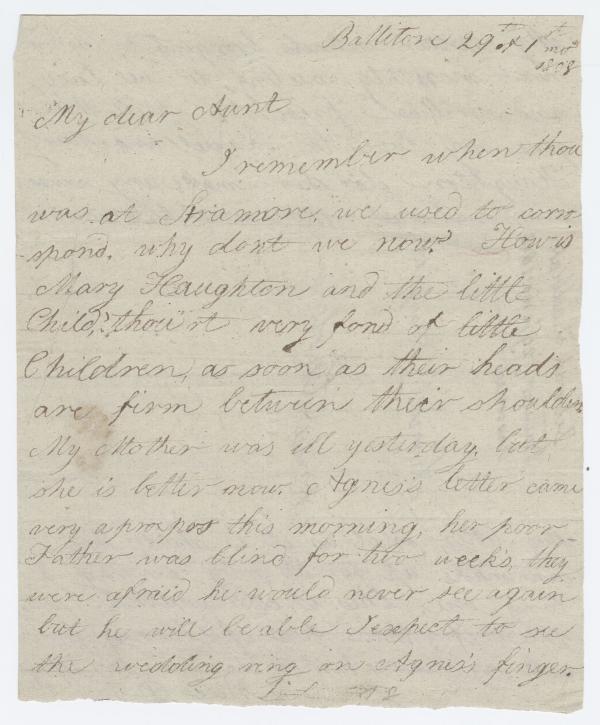 Ballitore 29th of 1st
mo
1808
My dear Aunt
I remember when thou
was at Stramore, we used to corre
spond, why dont we now? How is
Mary Haughton and the little
Child? thou'rt very fond of little
Children, as soon as their heads
are firm between their shoulders
My Mother was ill yesterday, but
she is better now. Agnes's letter came
very apropos this morning, her poor
Father was blind for two weeks, they
were afraid he would never see again
but he will be able I expect to see
the wedding ring on Agnes's finger.